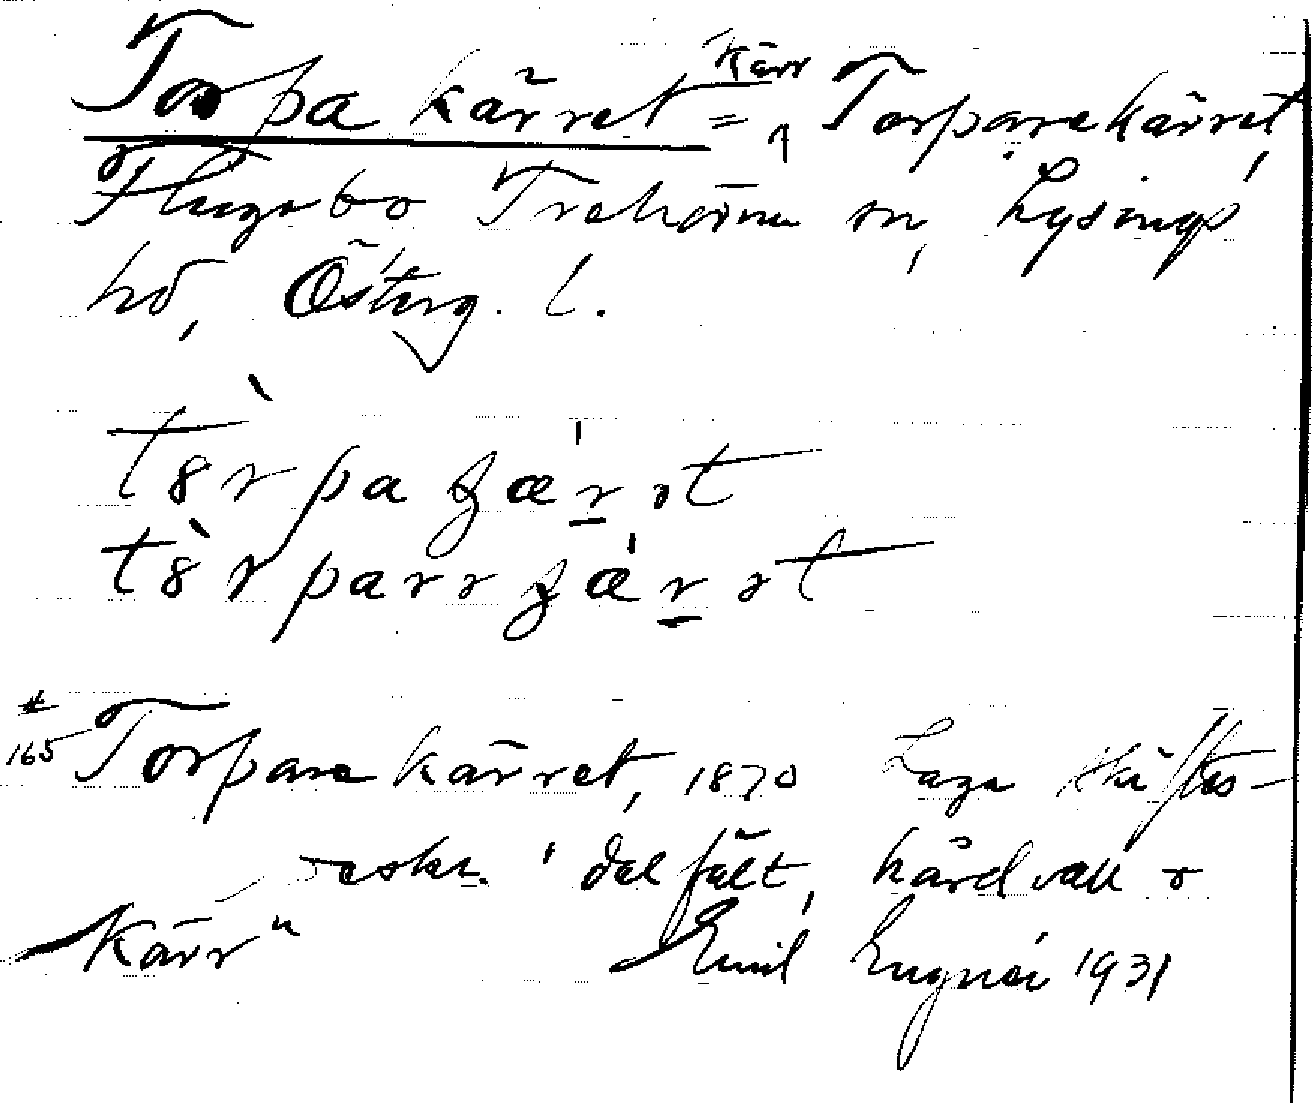 Torpa kärret = kärr Torparekärret,
Flugebo Trehörna sn, Lysings
hd, Österg. l.
tòrpa ʒæ'rət
tòrparə ʒæ'rət
165 Torpare kärret, 1870 Laga skiftes-
beskr. "del fält, hårdvall o
kärr" Emil 1931